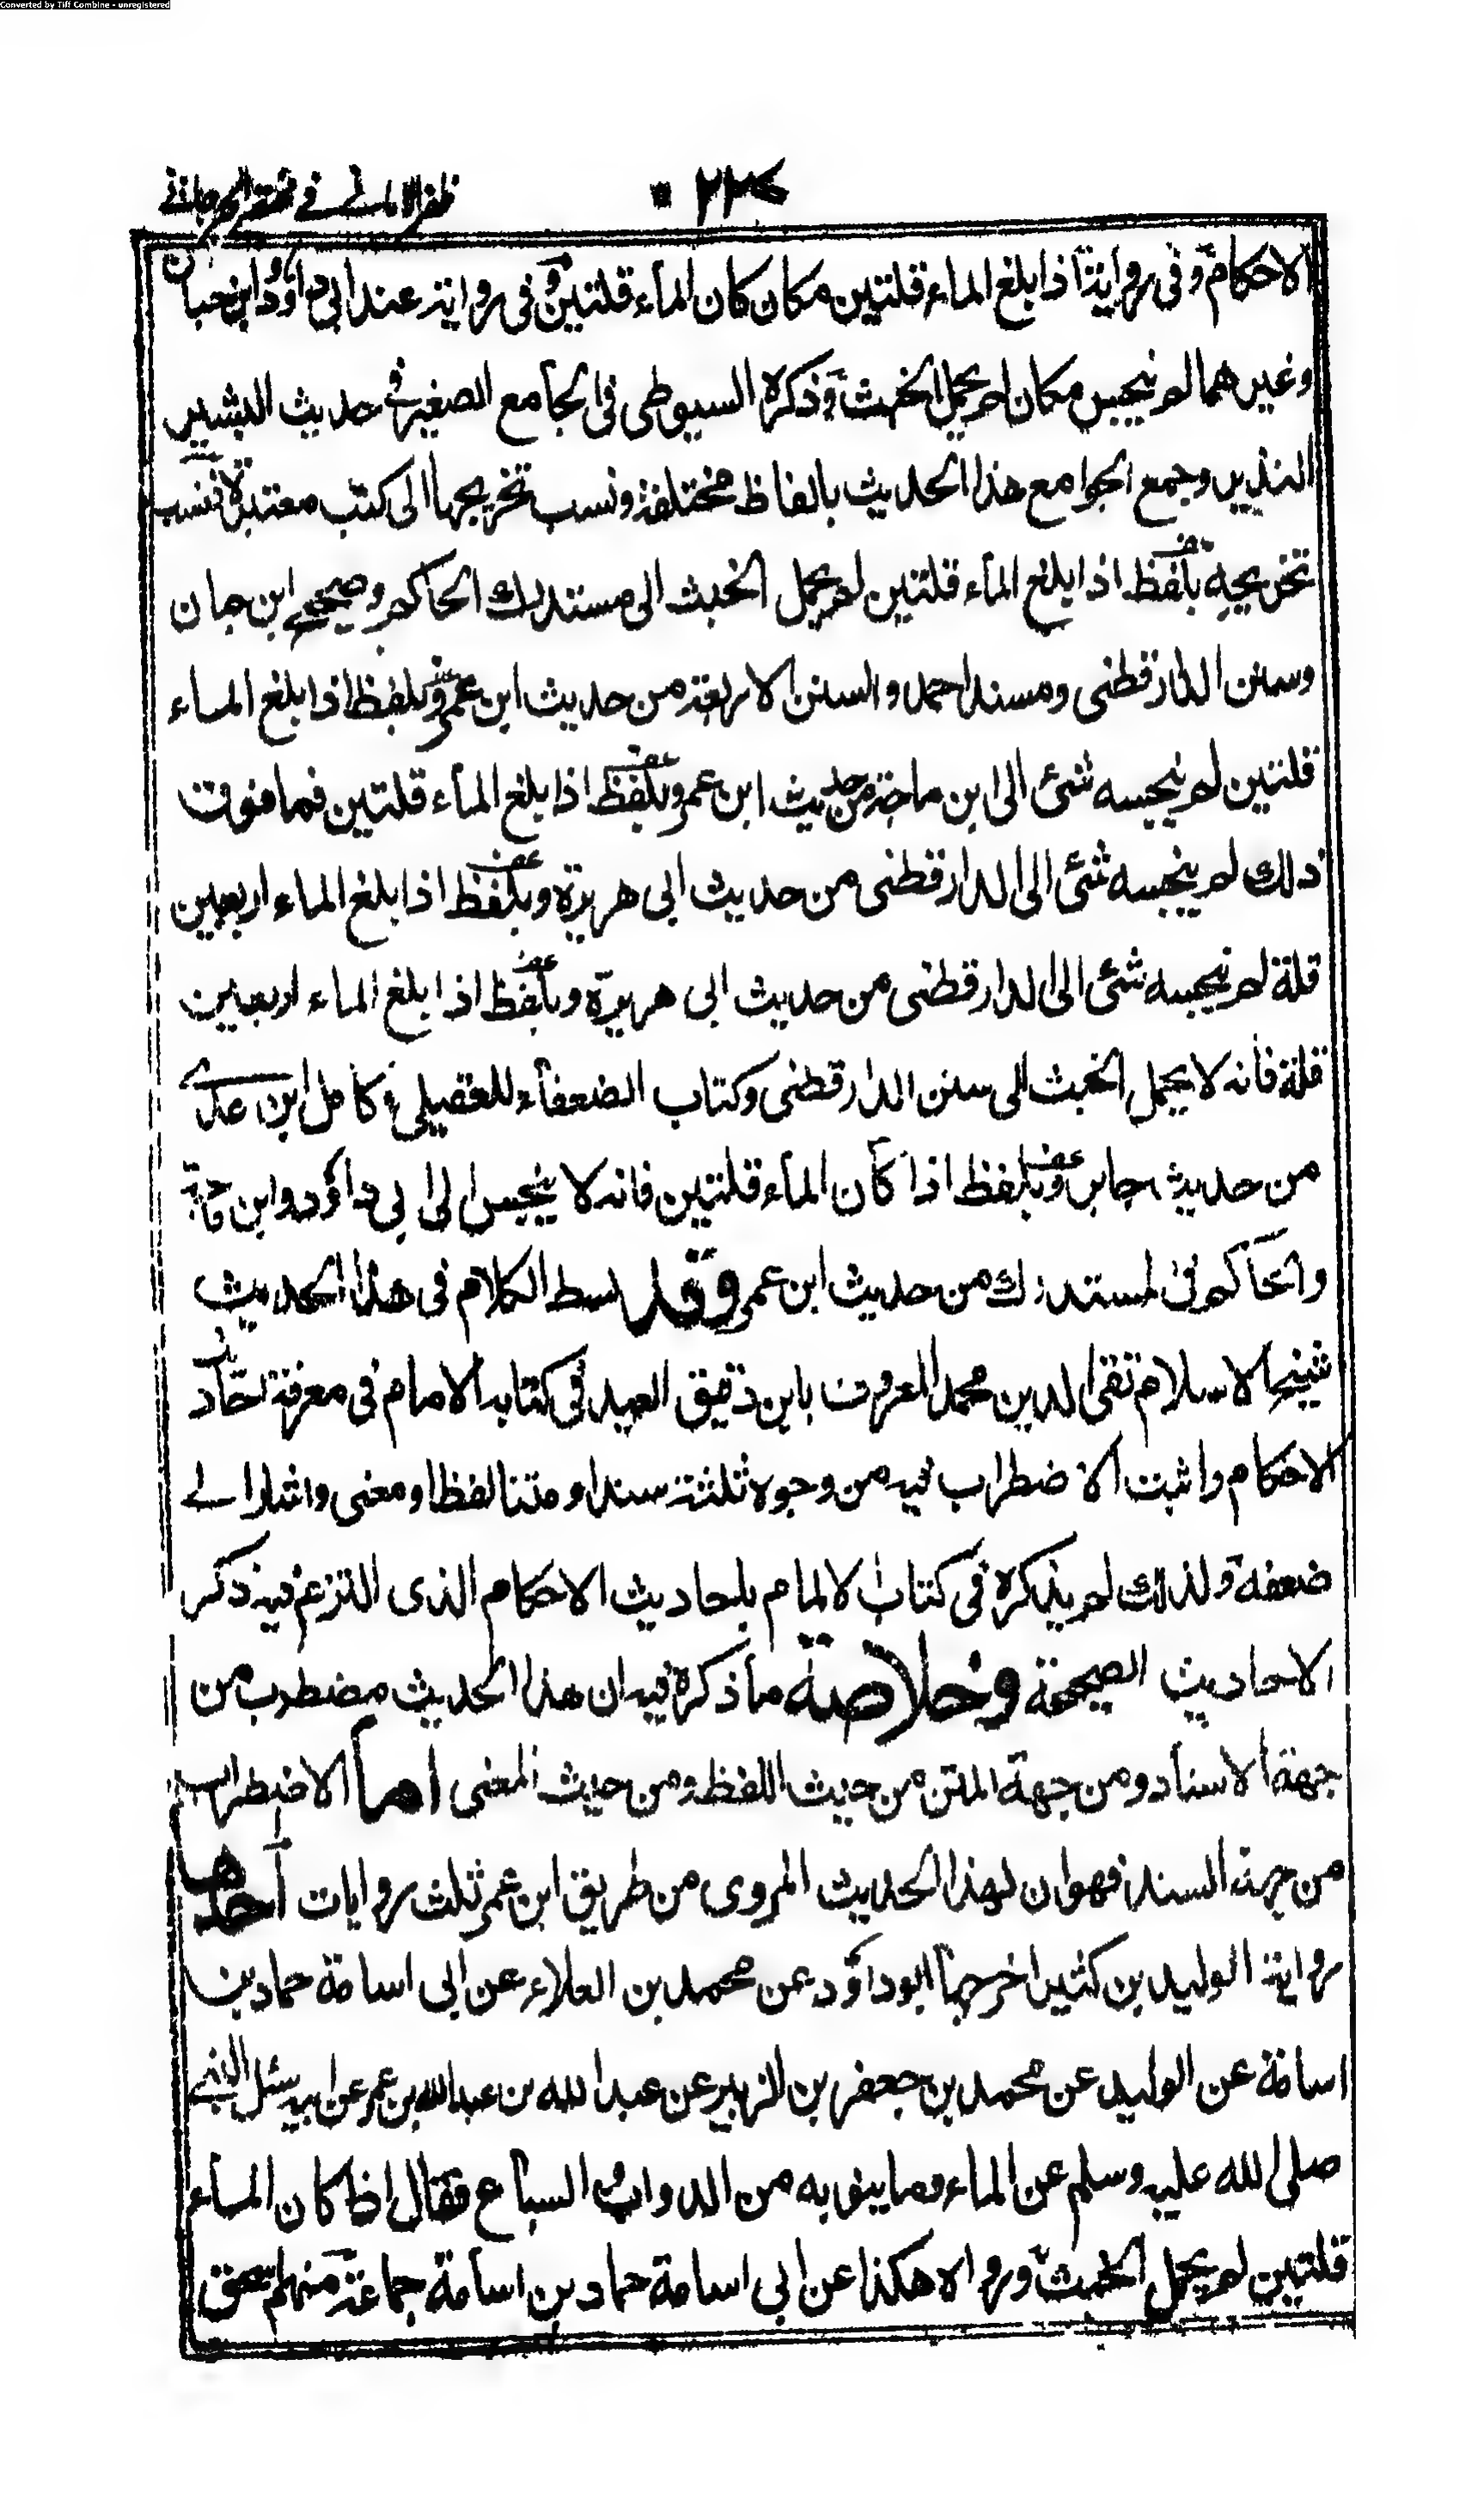 Converted by Tiff Combine - unregistered
ظفر الامانے فے مختصر الجرجانے
٢٢٧
الاحكام وفى رواية اذا بلغ الماء قلتين مكان كان الماء قلتين وفى رواية عند ابى داؤد وابن حبان
وغيرهما لم ينجس مكان لم يحمل الخبث وذكره السيوطى فى الجامع الصغير فے حديث البشير
النذير وجمع الجوامع هذا الحديث بالفاظ مختلفة ونسب تخريجها الى كتب معتبرة فنسب
تخريجه بلفظ اذا بلغ الماء قلتين لم يحمل الخبث الى مستدرك الحاكم وصحيح ابن حبان
وسنن الدارقطنى ومسند احمد والسنن الاربعة من حديث ابن عمر وبلفظ اذا بلغ الماء
قلتين لم ينجسه شئ الى ابن ماجة من حديث ابن عمر وبلفظ اذا بلغ الماء قلتين فما فوق
ذلك لم ينجسه شئ الى الدارقطنى من حديث ابى هريرة وبلفظ اذا بلغ الماء اربعين
قلة لم ينجسه شئ الى الدارقطنى من حديث ابى هريرة وبلفظ اذا بلغ الماء اربعين
قلة فانه لا يحمل الخبث الى سنن الدارقطنى وكتاب الضعفاء للعقيلى وكامل ابن عدے
من حديث جابر وبلفظ اذا كان الماء قلتين فانه لا ينجس الى ابى داؤد وابن ماجة
والحاكم فى المستدرك من حديث ابن عمر وقد بسط الكلام فى هذا الحديث
شيخ الاسلام تقى الدين محمد المعروف بابن دقيق العيد فى كتابه الامام فى معرفة احاديث
الاحكام واثبت الاضطراب فيه من وجوه ثلثة سندا ومتنا لفظا ومعنى واشار الے
ضعفه ولذلك لم يذكره فى كتاب الالمام باحاديث الاحكام الذى التزم فيه ذكر
الاحاديث الصحيحة وخلاصة ما ذكره فيه ان هذا الحديث مضطرب من
جهة الاسناد ومن جهة المتن من حيث اللفظ ومن حيث المعنى اما الاضطراب
من جهة السند فهو ان لهذا الحديث المروى من طريق ابن عمر ثلث روايات احدها
رواية الوليد بن كثير اخرجها ابو داؤد عن محمد بن العلاء عن ابى اسامة حماد بن
اسامة عن الوليد عن محمد بن جعفر بن الزبير عن عبد الله بن عبد الله بن عمر عن ابيه سئل النبے
صلى الله عليه وسلم عن الماء وما ينوبه من الدواب والسباع فقال اذا كان الماء
قلتين لم يحمل الخبث ورواه هكذا عن ابى اسامة حماد بن اسامة جماعة منهم اسحق